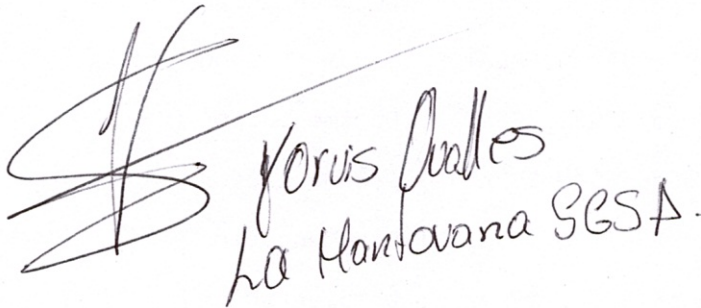 Yorvis Ovalles
La Mantovana SGSA.